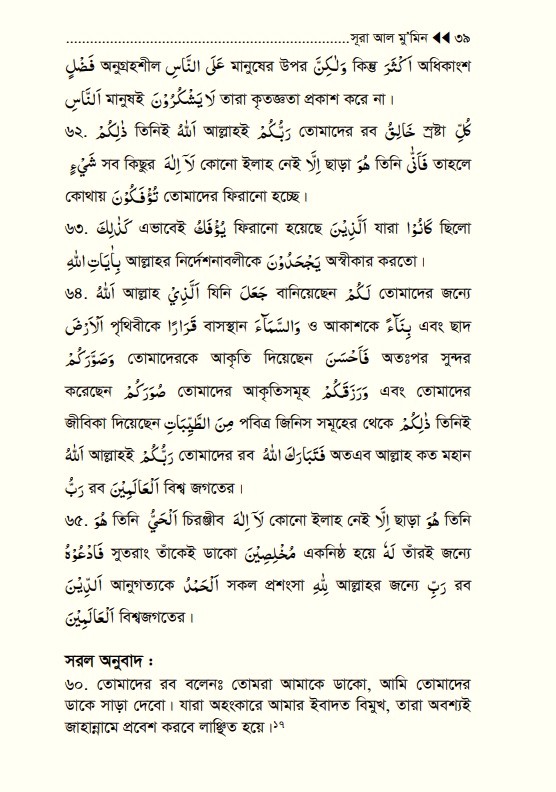 .......................................................................সূরা আল মু’মিন ◀◀ ৩৯
فَضْلٍ অনুগ্রহশীল عَلَى النَّاسِ মানুষের উপর وَلٰكِنَّ কিন্তু اَكْثَرَ অধিকাংশ
اَلنَّاسِ মানুষই لَا يَشْكُرُوْنَ তারা কৃতজ্ঞতা প্রকাশ করে না।
৬২. ذٰلِكُمُ তিনিই اَللهُ আল্লাহই رَبُّكُمْ তোমাদের রব خَالِقُ স্রষ্টা كُلِّ
شَيْءٍ সব কিছুর لَآ اِلٰهَ কোনো ইলাহ নেই اِلَّا ছাড়া هُوَ তিনি فَاَنّٰى তাহলে
কোথায় تُؤْفَكُوْنَ তোমাদের ফিরানো হচ্ছে।
৬৩. كَذٰلِكَ এভাবেই يُؤْفَكُ ফিরানো হয়েছে اَلَّذِيْنَ যারা كَانُوْا ছিলো
بِاٰيَاتِ اللهِ আল্লাহর নির্দেশনাবলীকে يَجْحَدُوْنَ অস্বীকার করতো।
৬৪. اَللهُ আল্লাহ اَلَّذِيْ যিনি جَعَلَ বানিয়েছেন لَكُمْ তোমাদের জন্যে
اَلْاَرْضَ পৃথিবীকে قَرَارًا বাসস্থান وَالسَّمَآءَ ও আকাশকে بِنَآءً এবং ছাদ
وَصَوَّرَكُمْ তোমাদেরকে আকৃতি দিয়েছেন فَاَحْسَنَ অতঃপর সুন্দর
করেছেন صُوَرَكُمْ তোমাদের আকৃতিসমূহ وَرَزَقَكُمْ এবং তোমাদের
জীবিকা দিয়েছেন مِنَ الطَّيِّبَاتِ পবিত্র জিনিস সমূহের থেকে ذٰلِكُمُ তিনিই
اَللهُ আল্লাহই رَبُّكُمْ তোমাদের রব فَتَبَارَكَ اللهُ অতএব আল্লাহ কত মহান
رَبُّ রব اَلْعَالَمِيْنَ বিশ্ব জগতের।
৬৫. هُوَ তিনি اَلْحَيُّ চিরঞ্জীব لَآ اِلٰهَ কোনো ইলাহ নেই اِلَّا ছাড়া هُوَ তিনি
فَادْعُوْهُ সুতরাং তাঁকেই ডাকো مُخْلِصِيْنَ একনিষ্ঠ হয়ে لَهُ তাঁরই জন্যে
اَلدِّيْنَ আনুগত্যকে اَلْحَمْدُ সকল প্রশংসা لِلّٰهِ আল্লাহর জন্যে رَبِّ রব
اَلْعَالَمِيْنَ বিশ্বজগতের।
সরল অনুবাদ :
৬০. তোমাদের রব বলেনঃ তোমরা আমাকে ডাকো, আমি তোমাদের
ডাকে সাড়া দেবো। যারা অহংকারে আমার ইবাদত বিমুখ, তারা অবশ্যই
জাহান্নামে প্রবেশ করবে লাঞ্ছিত হয়ে।১৭